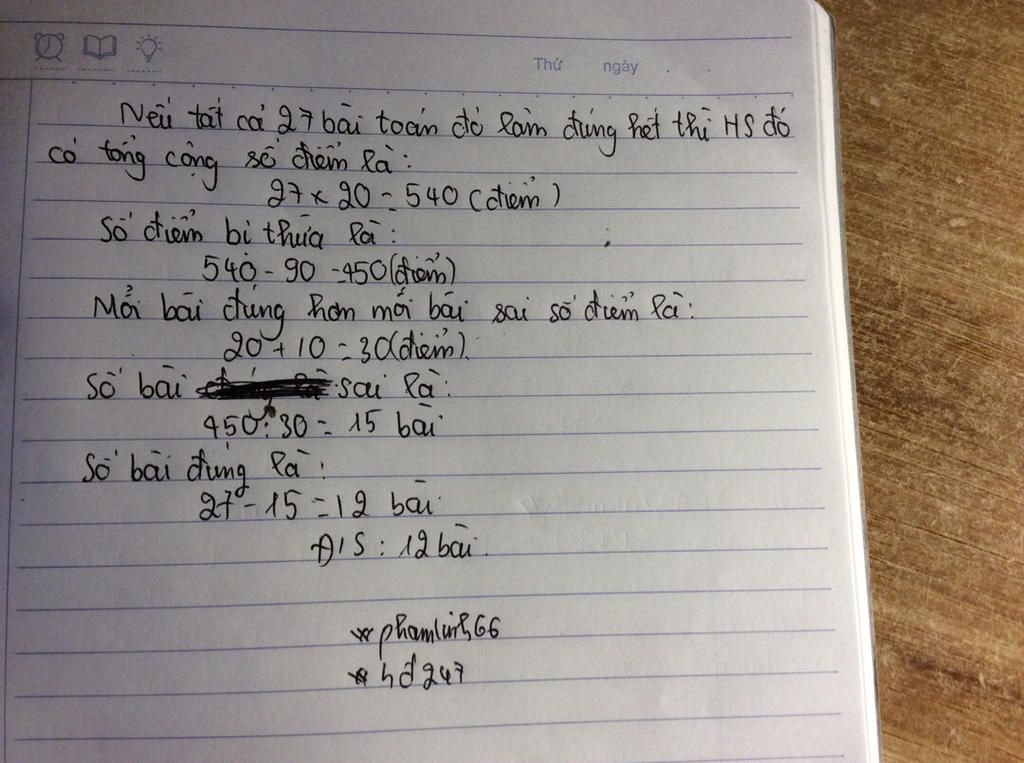 Thứ ngày
Nếu tất cả 27 bài toán đó làm đúng hết thì HS đó
có tổng cộng số điểm là:
27 x 20 = 540 (điểm)
Số điểm bị thừa là:
540 - 90 = 450 (điểm)
Mỗi bài đúng hơn mỗi bài sai số điểm là:
20 + 10 = 30 (điểm).
Số bài sai là:
450 : 30 = 15 bài
Số bài đúng là:
27 - 15 = 12 bài
Đ/S : 12 bài.
* phamlinh66
* hđ247